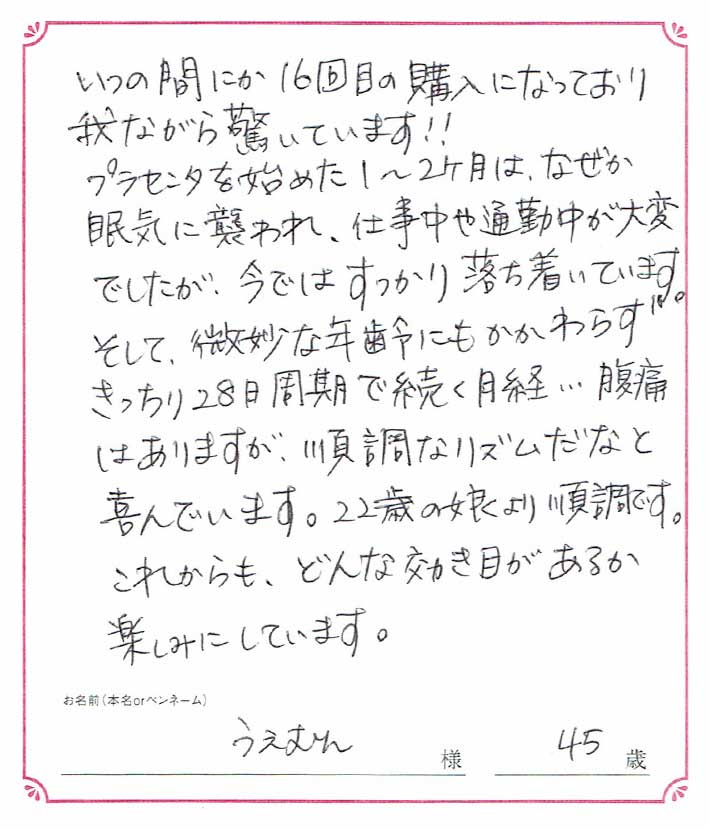 いつの間にか16回目の購入になっており
我ながら驚いています!!
プラセンタを始めた1～2ケ月は、なぜか
眠気に襲われ、仕事中や通勤中が大変
でしたが、今ではすっかり落ち着いています。
そして、微妙な年齢にもかかわらず
きっちり28日周期で続く月経…腹痛
はありますが、順調なリズムだなと
喜んでいます。22歳の娘より順調です。
これからも、どんな効き目があるか
楽しみにしています。
お名前(本名orペンネーム)
うえむん 様 45 歳